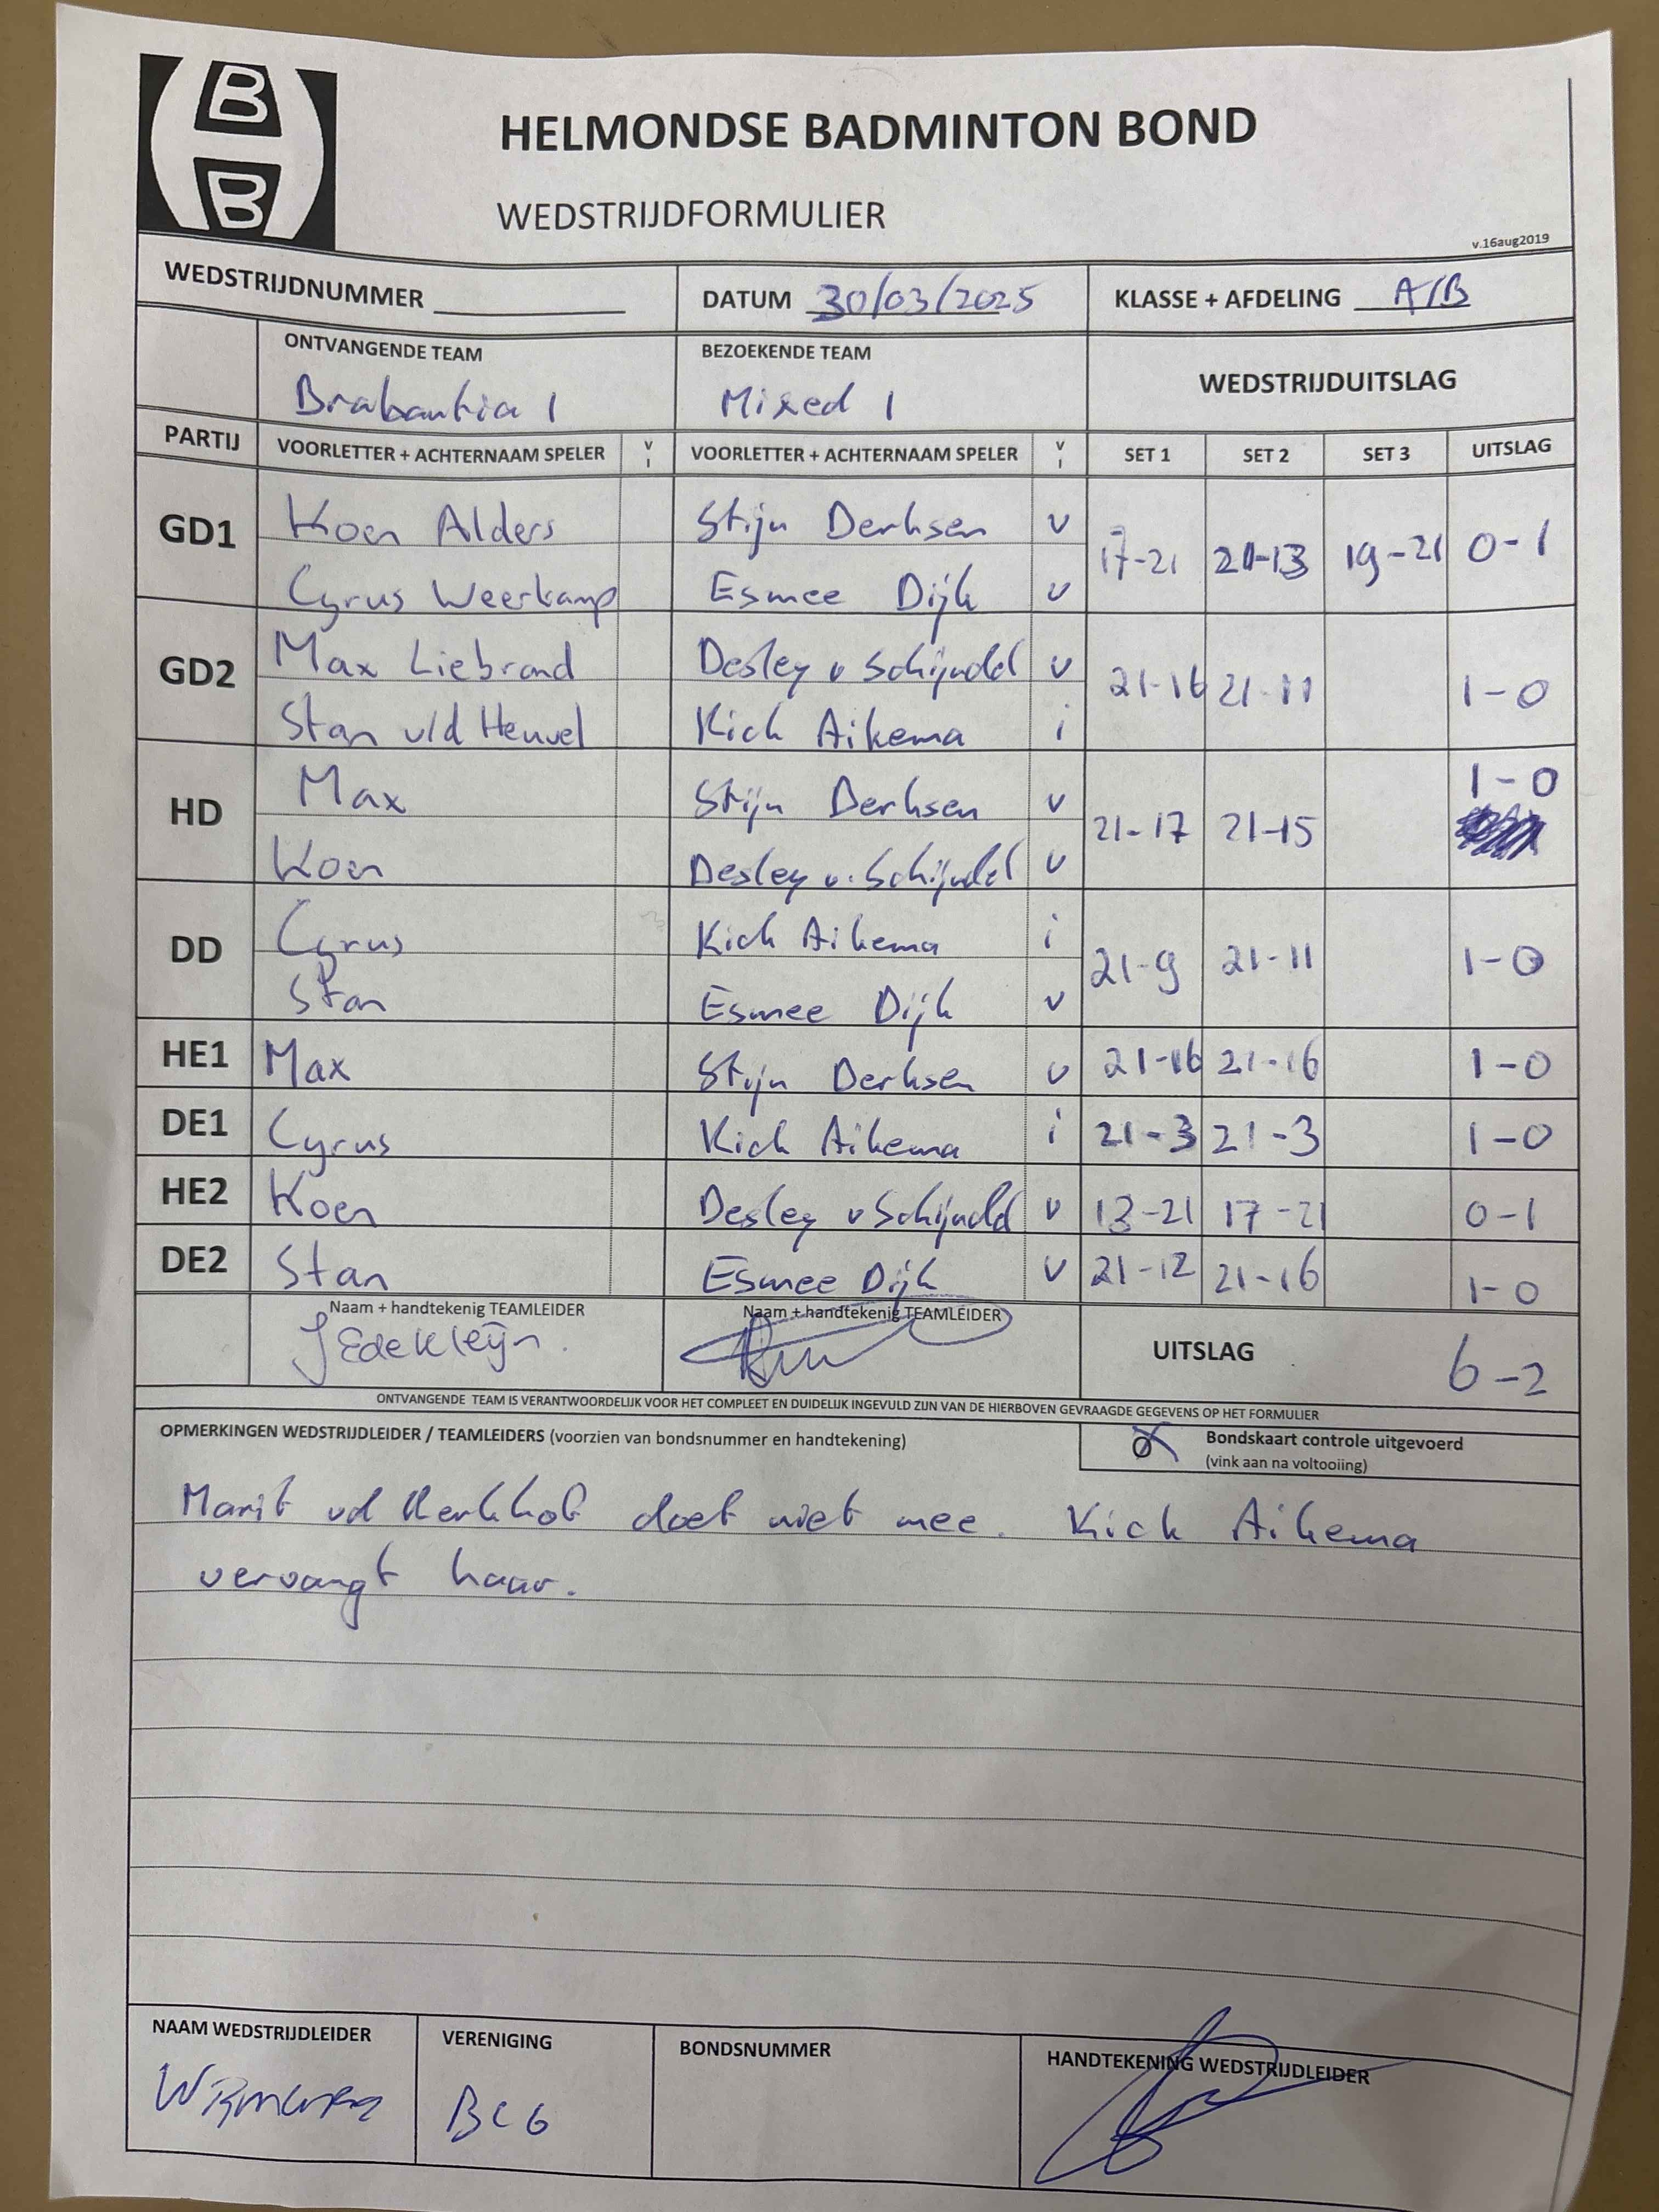 B
B
HELMONDSE BADMINTON BOND
WEDSTRIJDFORMULIER
v.16aug2019
WEDSTRIJDNUMMER
DATUM 30/03/2025
KLASSE + AFDELING A/B
ONTVANGENDE TEAM
BEZOEKENDE TEAM
WEDSTRIJDUITSLAG
Brabantia 1
Mixed 1
PARTIJ VOORLETTER + ACHTERNAAM SPELER V I VOORLETTER + ACHTERNAAM SPELER V I SET 1 SET 2 SET 3 UITSLAG
GD1 Koen Alders Stijn Derksen v
17-21 21-13 19-21 0-1
Cyrus Weerkamp Esmee Dijk v
GD2 Max Liebrand Desley v Schijndel v
21-16 21-11 1-0
Stan v/d Heuvel Kick Aikema i
HD Max Stijn Derksen v
21-17 21-15 1-0
Koen Desley v. Schijndel v
DD Cyrus Kick Aikema i
21-9 21-11 1-0
Stan Esmee Dijk v
HE1 Max Stijn Derksen v 21-16 21-16 1-0
DE1 Cyrus Kick Aikema i 21-3 21-3 1-0
HE2 Koen Desley v Schijndel v 13-21 17-21 0-1
DE2 Stan Esmee Dijk v 21-12 21-16 1-0
Naam + handtekenig TEAMLEIDER
Naam + handtekenig TEAMLEIDER
UITSLAG 6-2
JEdeKleijn.
ONTVANGENDE TEAM IS VERANTWOORDELIJK VOOR HET COMPLEET EN DUIDELIJK INGEVULD ZIJN VAN DE HIERBOVEN GEVRAAGDE GEGEVENS OP HET FORMULIER
OPMERKINGEN WEDSTRIJDLEIDER / TEAMLEIDERS (voorzien van bondsnummer en handtekening)
Bondskaart controle uitgevoerd
(vink aan na voltooiing)
Marit vd Kerkhof doet niet mee. Kick Aikema
vervangt haar.
NAAM WEDSTRIJDLEIDER
VERENIGING
BONDSNUMMER
HANDTEKENING WEDSTRIJDLEIDER
BCG